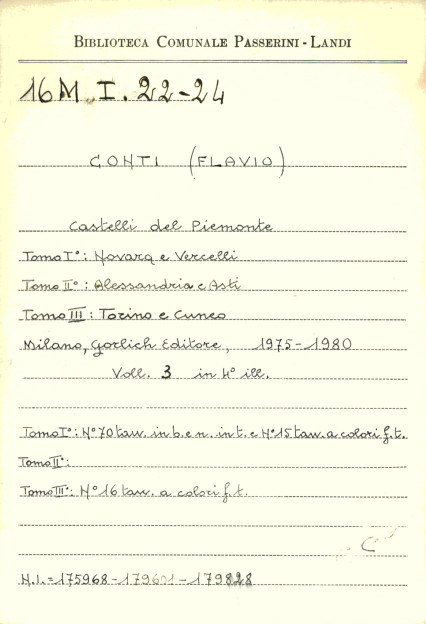 BIBLIOTECA COMUNALE PASSERINI-LANDI
16M. I. 22-24
CONTI (FLAVIO)
Castelli del Piemonte
Tomo I°: Novara e Vercelli
Tomo II°: Alessandria e Asti
Tomo III: Torino e Cuneo
Milano, Gorlich Editore, 1975-1980
Voll. 3 in 4° ill.
Tomo I°: N°70 tav. in b. e n. in t. e N°15 tav. a colori f.t.
Tomo II°:
Tomo III°: N°16 tav. a colori f.t.
C
N.I.=175968-179601-179828